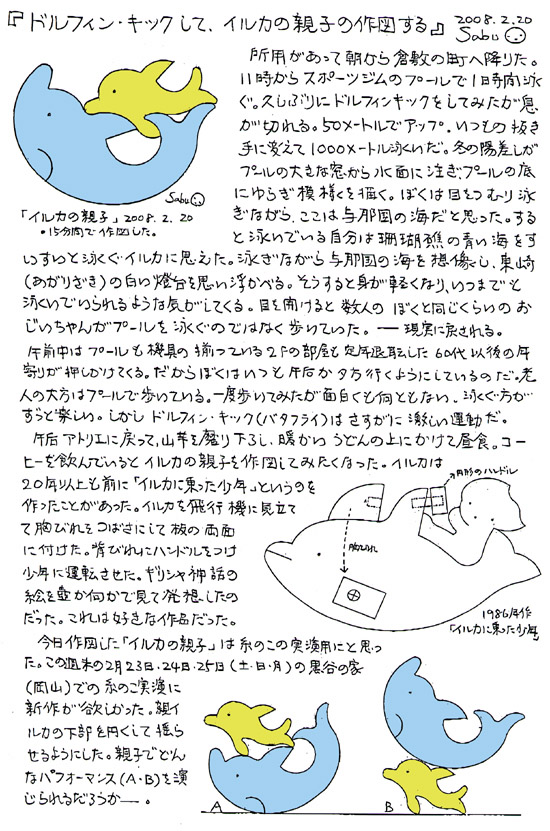 『ドルフィン・キックして、イルカの親子の作図する』
2008.2.20
Sabu
所用があって朝から倉敷の町へ降りた。
11時からスポーツジムのプールで1時間泳
ぐ。久しぶりにドルフィンキックをしてみたが息
が切れる。50メートルでアップ。いつもの抜き
手に変えて1000メートル泳いだ。冬の陽差しが
プールの大きな窓から水面に注ぎプールの底
にゆらぎ模様を描く。ぼくは目をつむり泳
ぎながら、ここは与那国の海だと思った。する
と泳いでいる自分は珊瑚礁の青い海をす
いすいと泳ぐイルカに思えた。泳ぎながら与那国の海を想像し、東崎
(あがりざき)の白い燈台を思い浮かべる。そうすると身が軽くなり、いつまでも
泳いでいられるような気がしてくる。目を開けると数人のぼくと同じくらいのお
じいちゃんがプールを泳ぐのではなく歩いていた。── 現実に戻される。
Sabu
「イルカの親子」2008.2.20
・15分間で作図した。
午前中はプールも機具の揃っている2Fの部屋も定年退職した60代以後の年
寄りが押しかけてくる。だからぼくはいつも午后か夕方行くようにしているのだ。老
人の大方はプールで歩いている。一度歩いてみたが面白くも何ともない、泳ぐ方が
ずっと楽しい。しかしドルフィン・キック(バタフライ)はさすがに激しい運動だ。
午后アトリエに戻って、山芋を擦り下ろし、暖かいうどんの上にかけて昼食。コー
ヒーを飲んでいるとイルカの親子を作図してみたくなった。イルカは
20年以上も前に「イルカに乗った少年」というのを
作ったことがあった。イルカを飛行機に見立て
て胸びれをつばさにして板の両面
に付けた。背びれにハンドルをつけ
少年に運転させた。ギリシャ神話の
絵を壷か何かで見て発想したの
だった。これは好きな作品だった。
円形のハンドル
胸びれ
1986年作
「イルカに乗った少年」
今日作図した「イルカの親子」は糸のこの実演用にと思っ
た。この週末の2月23日・24日・25日(土・日・月)の黒谷の家
(岡山)での糸のこ実演に
新作が欲しかった。親イ
ルカの下部を円くして揺ら
せるようにした。親子でどん
なパフォーマンス(A・B)を演
じられるだろうか──。
A
B